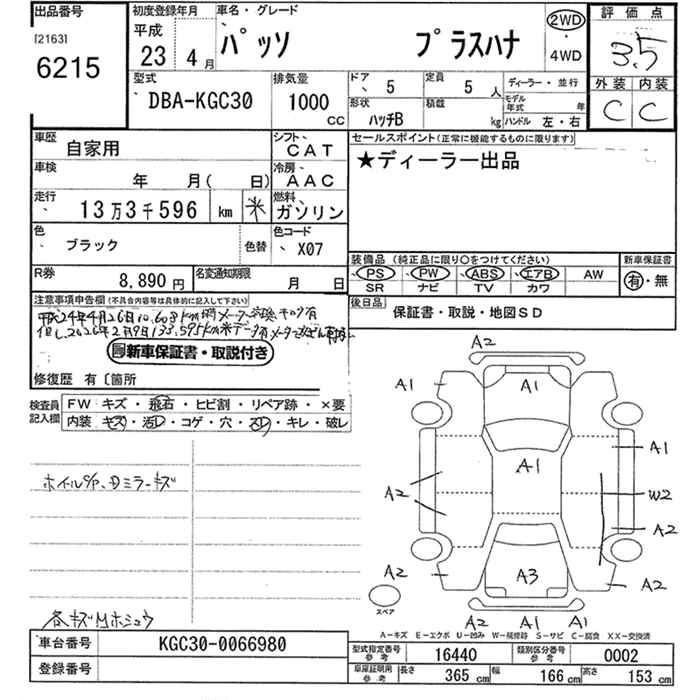 出品番号
[2163]
6215
初度登録年月
平成
23 4月
車名・グレード
パッソ プラスハナ
2WD
・
4WD
評価点
3.5
外装 内装
C C
型式
DBA-KGC30
排気量
1000
CC
ドア 5
形状
ハッチB
定員 5人
積載 kg
ディーラー・並行
モデル年式 年
ハンドル 左・右
車歴 自家用
シフト CAT
車検 年 月( 日)
冷房 AAC
走行 13万3千596 km
※
燃料
ガソリン
色 ブラック
色替
色コード
X07
R券 8,890円
名変通知期限 月 日
セールスポイント(正常に機能するものに限ります)
★ディーラー出品
装備品 (純正品に限り○をつけてください)
新車保証書
PS PW ABS エアB AW
SR ナビ TV カワ
有・無
後日品
保証書・取説・地図SD
注意事項申告欄(不具合内容等は具体的に記入して下さい)
平成24年4月26日10.608km時メーター交換キロク有
新車保証書・取説付き
修復歴 有〔箇所
検査員記入欄
FW キズ・飛石・ヒビ割・リペア跡・×要
内装 キズ・汚レ・コゲ・穴・スレ・キレ・破レ
各キズMホシュウ
A2
A1 A1
A1
A1
A2 W2
A2
A2 A3 A2
スペア
A2 A1 A1
A-キズ E-エクボ U-凹み W-補修跡 S-サビ C-腐食 XX-交換済
車台番号 KGC30-0066980
登録番号
型式指定番号 参考 16440
類別区分番号 参考 0002
車庫証明用 参考 長さ 365cm 幅 166cm 高さ 153cm